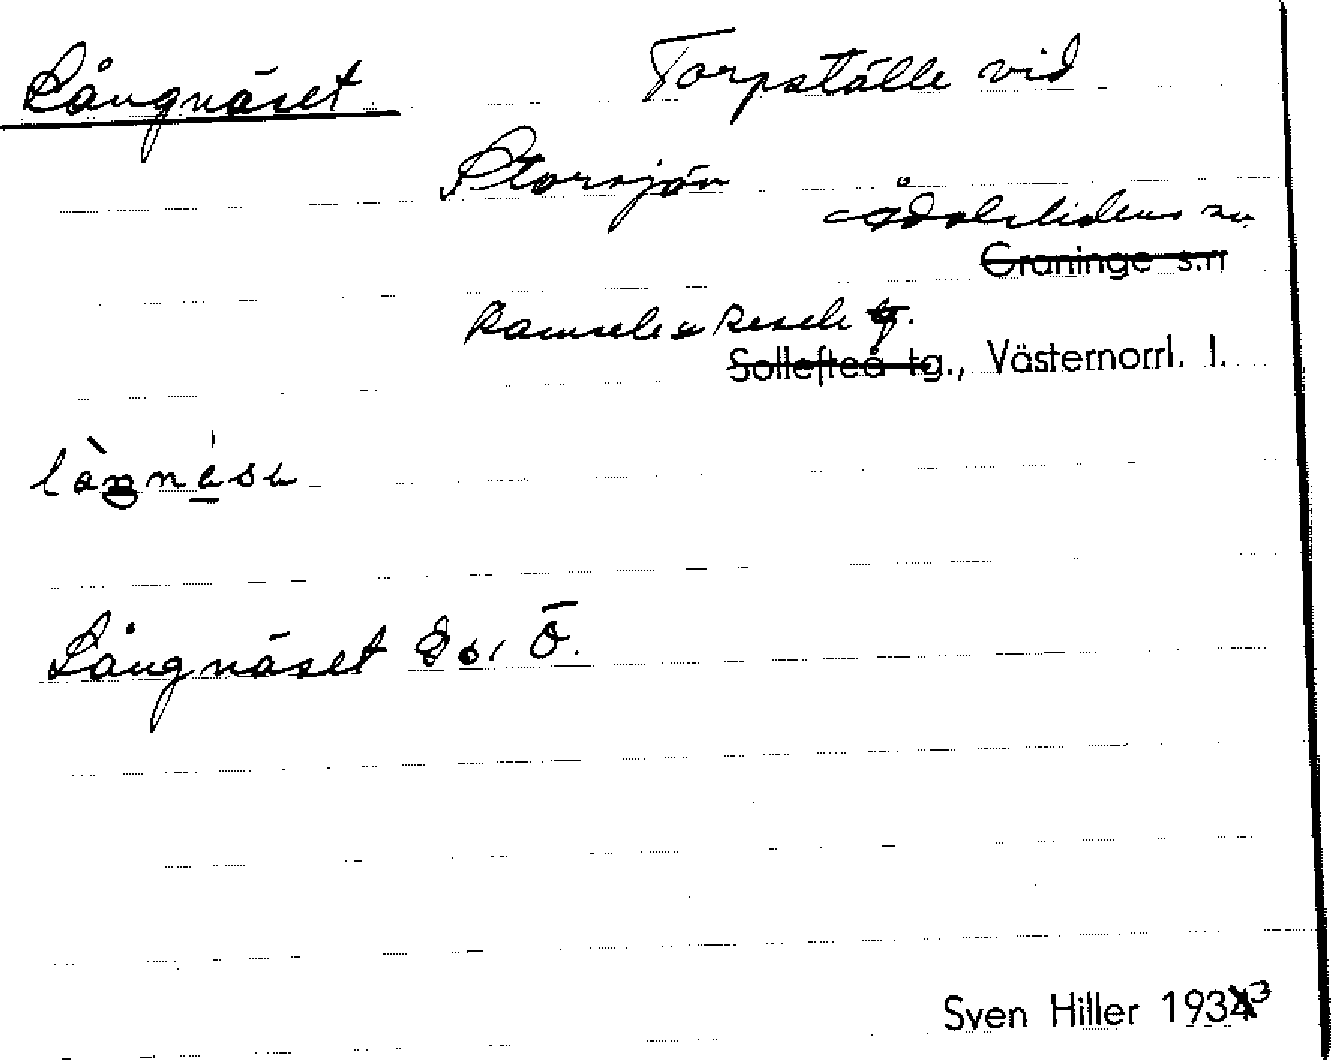 Långnäset Torpställe vid
Storsjön
Ådalslidens sn
Graninge s:n
Ramsele o Resele tg.
Sollefteå tg., Västernorrl. l.
Långnäset Ö.
Sven Hiller 1933